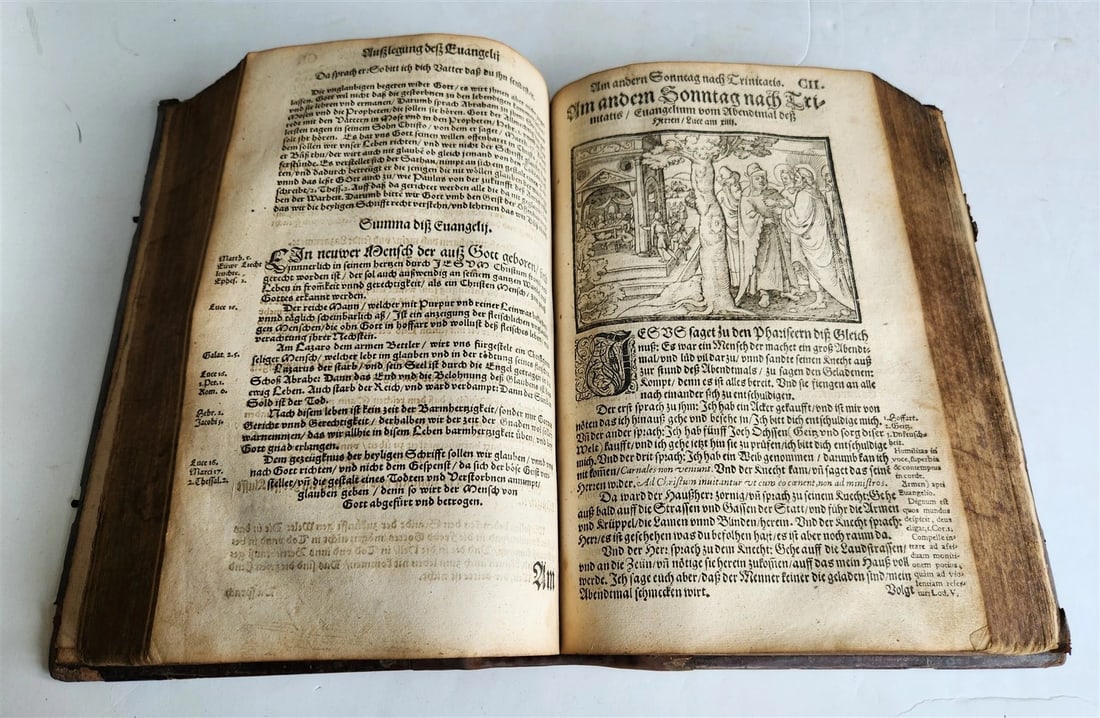 Außlegung deß Euangelij
Da sprach er: So bitt ich dich Vatter daß du ihn sendest
Die vnglaubigen begeren wider Gott / es wirt ihnen aber
lassen. Gott wil nicht daß die gestorbnen zu den lebendigen
vnd sie lehren vnd ermanen / Darumb sprach Abraham
Mosen vnd die Propheten / die sollen sie hören. Gott der
redt mit den Vättern in Mose vnd in den Propheten /
letsten tagen in seinem Sohn Christo / von dem er saget /
solt jhr hören. Es hat vns Gott seinen willen offenbaret in
dem sollen wir vnser Leben richten / vnd wer nicht der
er Büß thu / der wirt auch nit glaubē ob gleich jemand von den
ferstünde. Es verstellet sich der Sathan / nimpt an sich ein gestalt
vnd dadurch betreügt er die jenigen die nit wöllen glauben
vnnd das leßt GOtt auch zu / wie Paulus von der zukunfft
schreibt / 2. Thess. 2. Auff daß da gerichtet werden alle die da nit
ben der Warheit. Darumb bitte wir Gott vmb den Geist der
das wir die heyligen Schrifft recht verstehn / vnd lehrnen das wir
Summa diß Euangelij.
EIn neuwer Mensch der auß Gott geboren /
innnerlich in seinem hertzen durch JESVM Christum
gerecht worden ist / der sol auch außwendig an seinem gantzen
Leben in fromkeit vnnd gerechtigkeit / als ein Christen Mensch /
Gottes erkannt werden.
Matth. 5.
Euwr Liecht
leuchte.
Ephes. 2.
Der reiche Mann / welcher mit Purpur vnd reiner Leinwat
vnnd täglich scheinbarlich aß / Ist ein anzeigung der fleischlichen
gen Menschen / die ohn Gott in hoffart vnd wollust deß fleisches leben
verachtung ihrer Nechsten.
Luce 16.
Am Lazaro dem armen Bettler / wirt vns fürgestelt ein
seliger Mensch / welcher lebt im glauben vnd in der tödtung seines
Lazarus der starb / vnd sein Seel ist durch die Engel getragen in
Schoß Abrahe: Dann das End vnd die Belohnung deß Glaubens ist
ewig Leben. Auch starb der Reich / vnd ward verdampt: Dann der
Sold ist der Tod.
Galat. 2.5.
Luce 16.
1. Pet. 1.
Rom. 6.
Nach disem leben ist kein zeit der Barmhertzigkeit / sonder nur
Gericht vnnd Gerechtigkeit / derhalben wir der zeit der Gnaden
warnemmen / das wir allhie in disem Leben barmhertzigkeit üben / vnd
Gott gnad erlangen.
Hebr. 2.
Jacobi 5.
Dem gezeügknus der heyligen Schrifft sollen wir glauben / vnnd
nach Gott richten / vnd nicht dem Gespenst / da sich der böse Geist
stellet / vñ die gestalt eines Todten vnd Verstorbnen annimpt /
glauben geben / denn so wirt der Mensch von
Gott abgefürt vnd betrogen.
Luce 16.
Marci 17.
2. Thessal. 2.
Am
Am andern Sonntag nach Trinitatis. CII.
Am andern Sonntag nach Tri-
nitatis / Euangelium vom Abendtmal deß
Herren / Luce am xiiij.
JESVS saget zu den Phariseern diß Gleich
nuß: Es war ein Mensch der machet ein groß Abendt-
mal / vnd lüd vil darzu / vnnd sandte seinen Knecht auß
zur stund deß Abendtmals / zu sagen den Geladenen:
Kompt / denn es ist alles bereit. Vnd sie fiengen an alle
nach einander sich zu entschuldigen.
Der erst sprach zu ihm: Ich hab ein Acker gekaufft / vnd ist mir von
nöten das ich hinauß gehe vnd besehe in / Ich bitt dich entschuldige mich.
Vñ der ander sprach: Ich hab fünff Joch Ochssen / Geitz vnd sorg diser
Welt / kaufft / vnd ich gehe jetzt hin sie zu prüfen / ich bitt dich entschuldige
mich. Vnd der drit sprach: Ich hab ein Weib genommen / darumb kan ich
nit komen / Carnales non veniunt. Vnd der Knecht kam / vñ saget das seinē
Herren wider. Ad Christum inuitantur vt cum eo cœnent, non ad ministros.
1. Hoffart.
2. Geitz.
3. Vnkeusch-
heit.
Humilitas in
voce, superbia
& contemptus
in corde.
Da ward der Haußherr zornig / vñ sprach zu seinem Knecht: Gehe
auß bald auff die Strassen vnd Gassen der Statt / vnd führ die Armen
vnd Krüppel / die Lamen vnnd Blinden / herein. Vnd der Knecht sprach:
Herr / es ist geschehen was du befolhen hast / es ist aber noch raum da.
Armen / apti
Euangelio.
Dignum est
quos mundus
despicit, deus
eligat, 1. Cor. 1.
Vnd der Herr sprach zu dem Knecht: Gehe auff die Landstrassen /
vnd an die Zeün / vñ nötige sie herein zukomen / auff das mein Hauß voll
werde. Ich sage euch aber / daß der Menner keiner die geladen sind / mein
Abendtmal schmecken wirt.
Compelle in-
trare ad assi-
duam moniti-
onem potius,
quàm ad vio-
lentiam refer-
tur: Lod. V.
Volgt